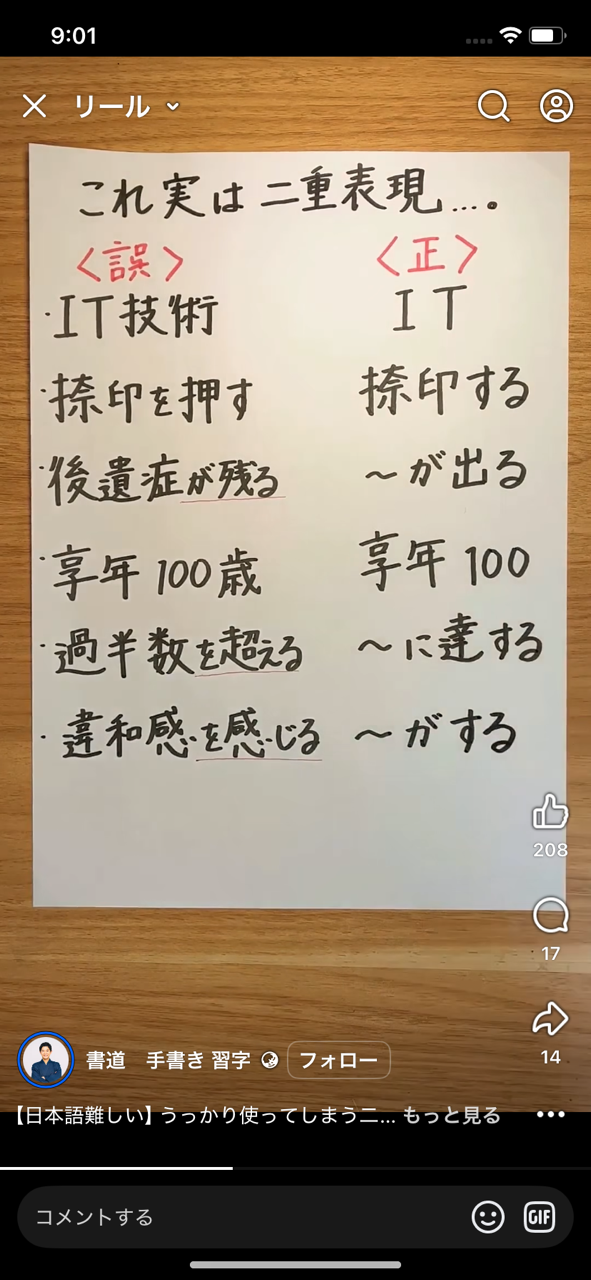 9:01
リール
これ実は二重表現…。
〈誤〉 〈正〉
・IT技術 IT
・捺印を押す 捺印する
・後遺症が残る 〜が出る
・享年100歳 享年100
・過半数を超える 〜に達する
・違和感を感じる 〜がする
208
17
14
書道 手書き 習字 フォロー
【日本語難しい】うっかり使ってしまう二... もっと見る
コメントする
GIF